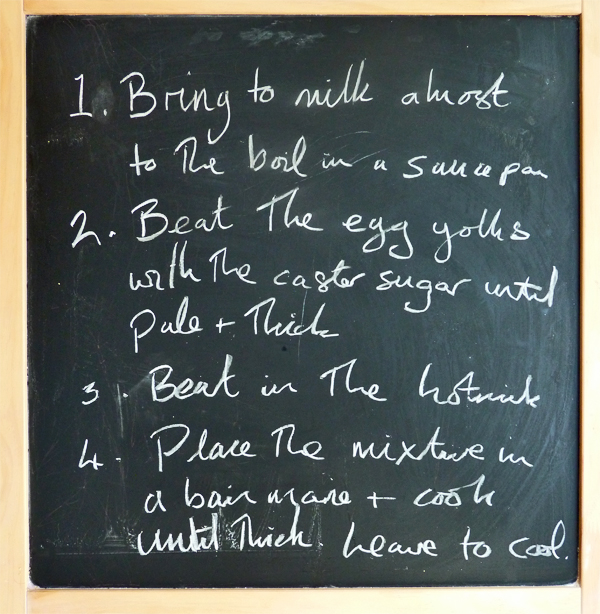 1. Bring to milk almost
to The boil in a saucepan
2. Beat The egg yolks
with The caster sugar until
pale + Thick
3. Beat in The hot milk
4. Place The mixture in
a bain marie + cook
until Thick. Leave to cool.